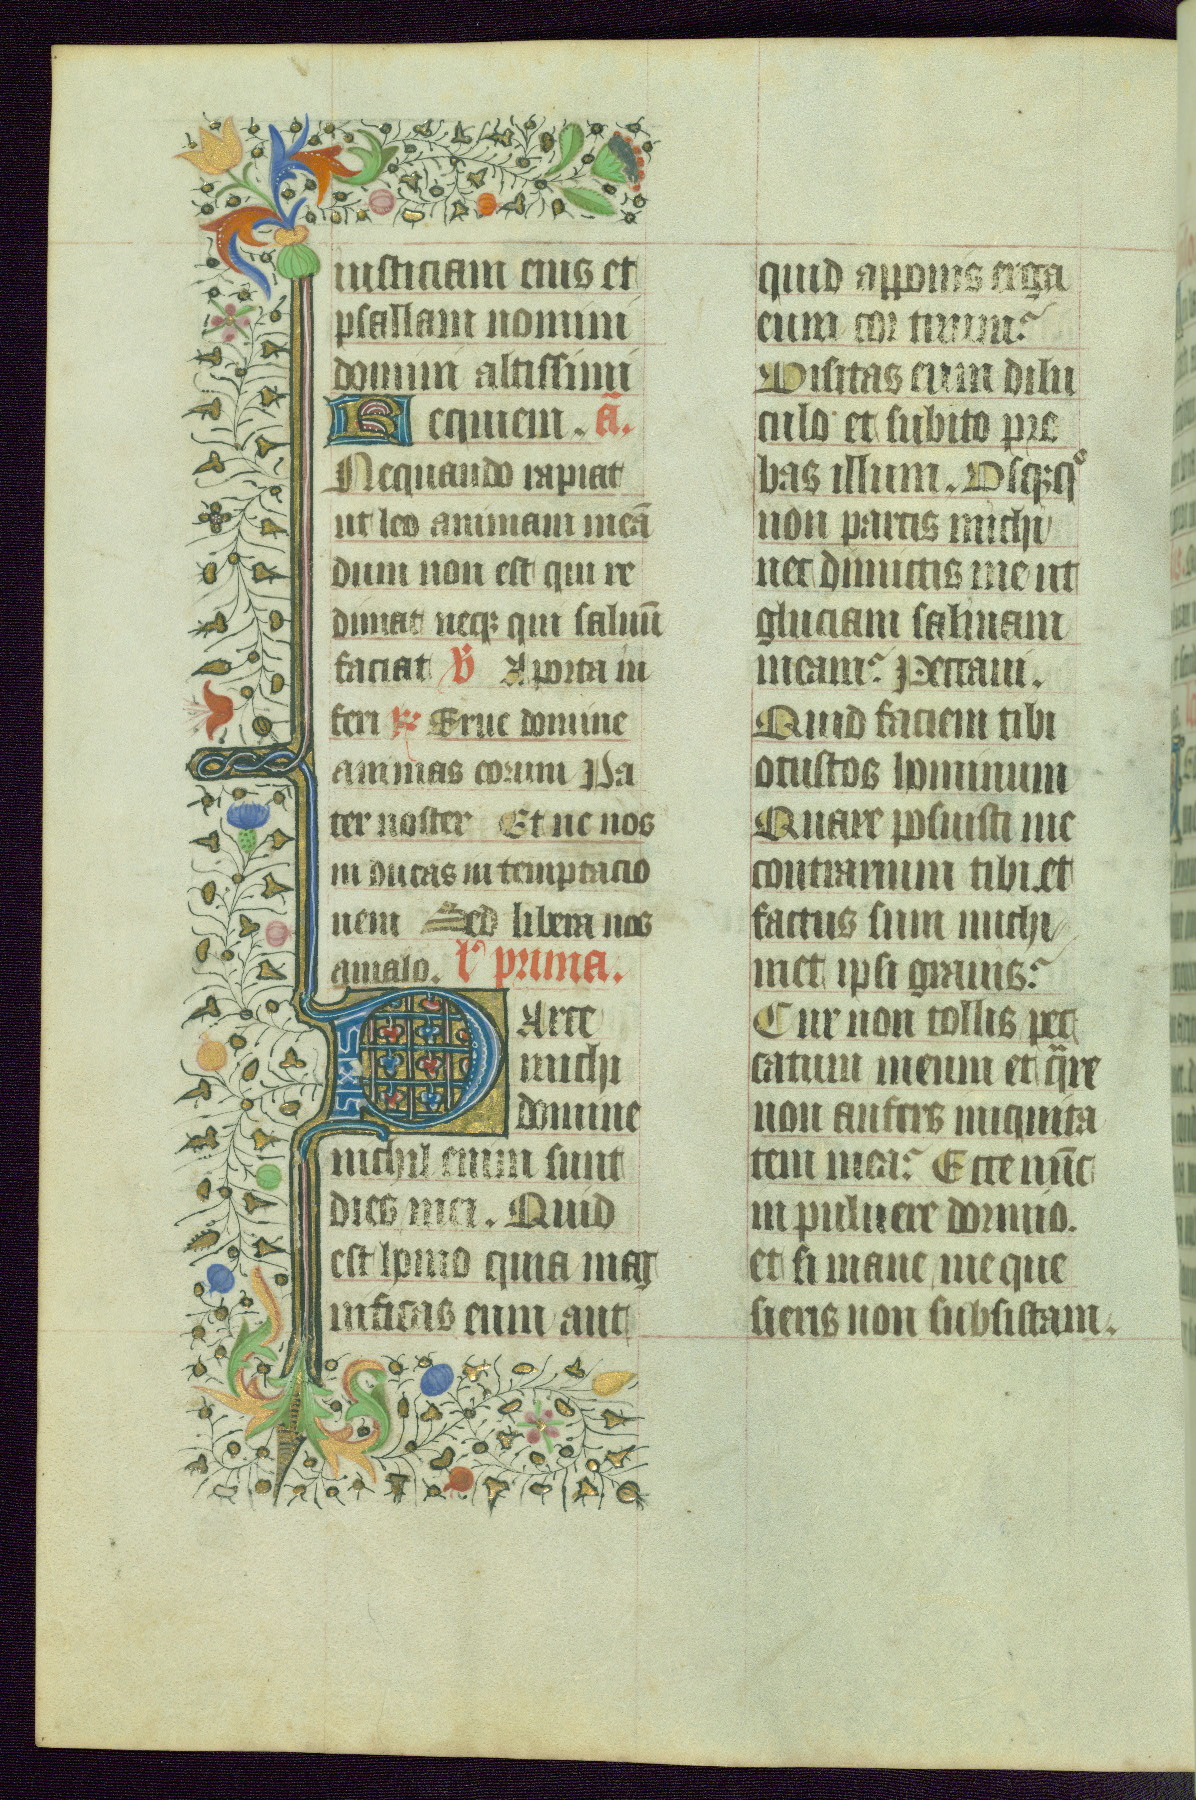 iusticiam eius et
psallam nomini
domini altissimi
Requiem. a̅.
Nequando rapiat
ut leo animam mea̅
dum non est qui re
dimat neqꝫ qui saluu̅
faciat ℣ A porta in
feri ℟ Erue domine
animas eorum Pa
ter noster Et ne nos
in ducas in temptacio
nem Sed libera nos
a malo. lͨ prima.
Parce
michi
domine
nichil enim sunt
dies mei. Quid
est homo quia mag
nificas eum aut
quid apponis erga
eum cor tuum?
Visitas eum dilu
culo et subito pro
bas illum. Vsqꝫqͦ
non parcis michi
nec dimittis me ut
gluciam saliuam
meam? Peccaui.
Quid faciem tibi
o custos hominum
Quare posuisti me
contrarium tibi et
factus sum michi
met ipsi grauis?
Cur non tollis pec
catum meum et q̅re
non aufers iniquita
tem mea? Ecce nu̅c
in puluere dormio.
et si mane me que
sieris non subsistam.